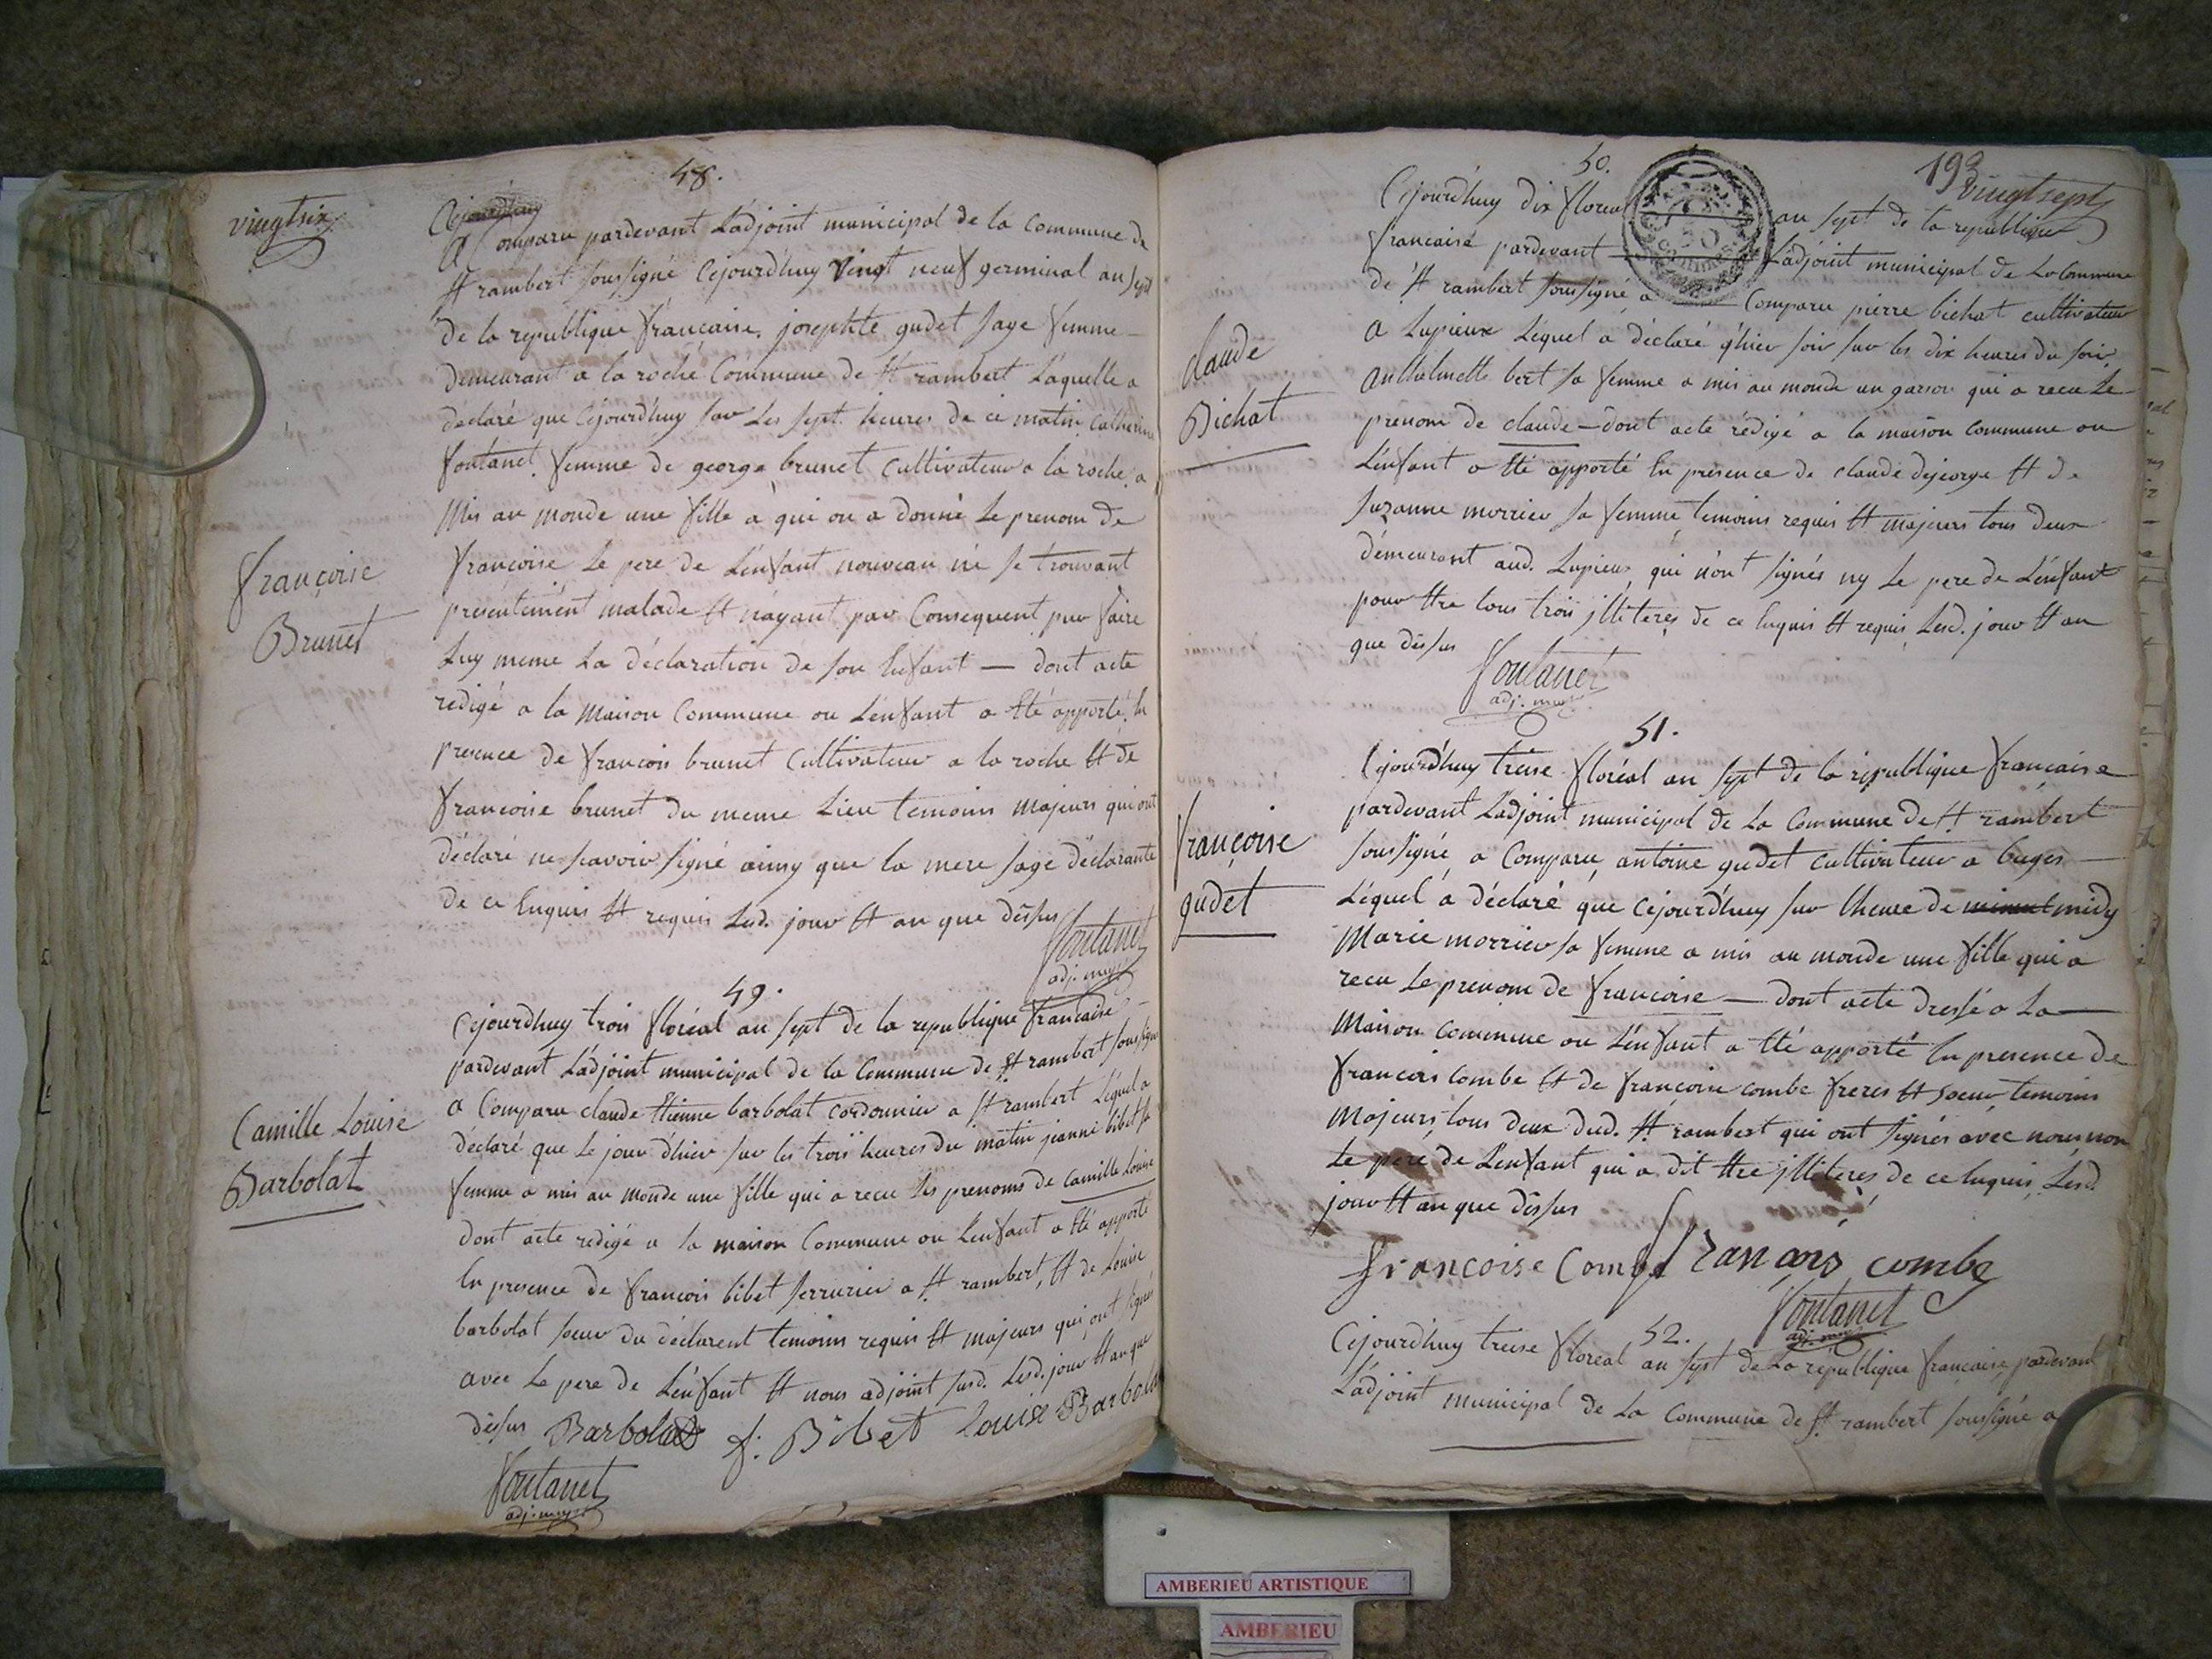 vingtsix
48.
a Comparu pardevant L'adjoint municipal de la Commune de
St rambert soussigné Cejourd'huy vingt neuf germinal an sept
de la republique française, josephte gudet sage femme
demeurant a la roche Commune de St rambert Laquelle a
déclaré que Cejourd'huy sur Les sept heures de ce matin Catherine
fontanel femme de george brunet Cultivateur a la roche a
Mis au monde une fille a qui on a donné Le prenom de
françoise Le pere de L'enfant nouveau né se trouvant
presentement malade Et n'ayant par Consequent pu faire
Luy meme La déclaration de son Enfant — dont acte
redigé a la Maison Commune ou L'enfant a Eté apporté, En
presence de francois brunet Cultivateur a la roche Et de
francoise brunet du meme Lieu temoins majeurs qui ont
déclaré ne scavoir signé ainsy que la mere sage déclarante
de ce Enquis Et requis Lesd. jour Et an que dessus
françoise
Brunet
fontanel
adj. mup.
49.
Cejourdhuy trois floréal an sept de la republique francaise
pardevant L'adjoint municipal de la Commune de St rambert soussigné
a Comparu claude Etienne barbolat cordonnier a St rambert Lequel a
déclaré que Le jour d'hier sur les trois heures du matin jeanne bibet sa
femme a mis au monde une fille qui a recu Les prenoms de Camille Louise
dont acte redigé a la maison Commune ou L'enfant a Eté apporté
En presence de francois bibet serrurier a St rambert, Et de Louise
barbolat soeur du déclarent temoins requis Et majeurs qui ont signés
avec Le pere de L'enfant Et nous adjoint susd. Lesd. jour Et an que
dessus Barbolat f. Bibet louise Barbolat
Camille Louise
Barbolat
fontanel
adj. mup.
193
vingtsept
50.
Cejourd'huy dix floreal an sept de la republique
francaise pardevant L'adjoint municipal de La Commune
de St rambert soussigné a Comparu pierre bichat cultivateur
a Lupieux Lequel a déclaré q'hier soir sur les dix heures du soir
Anthelmette bert sa femme a mis au monde un garson qui a recu Le
prenom de claude — dont acte rédigé a la maison Commune ou
L'enfant a Eté apporté En presence de claude dejeorge Et de
suzanne morrier sa femme temoins requis Et majeurs tous deux
démeurant aud. Lupieux qui n'ont signés ny Le pere de L'enfant
pour Etre tous trois jlliteres de ce Enquis Et requis Lesd. jour Et an
que dessus
claude
Bichat
fontanel
adj. mup.
51.
Cejourd'huy treise floréal an sept de la republique francaise
pardevant L'adjoint municipal de La Commune de St rambert
soussigné a Comparu antoine gudet cultivateur a buges
Lequel a déclaré que Cejourd'huy sur Lheure de minuit midy
Marie morrier sa femme a mis au monde une fille qui a
recu Le prenom de francoise — dont acte dressé a La
Maison Commune ou L'enfant a Eté apporté En presence de
francois Combe Et de françoise combe freres Et soeur, temoins
Majeurs tous deux dud. St rambert qui ont signés avec nous non
Le pere de L'enfant qui a dit Etre jlliteres de ce Enquis Lesd.
jour Et an que dessus
françoise
gudet
francoise Combe françois combe
fontanel
adj. mup.
52.
Cejourd'huy treise floreal an sept de La republique française pardevant
L'adjoint municipal de La Commune de St rambert soussigné a
AMBERIEU ARTISTIQUE
AMBERIEU